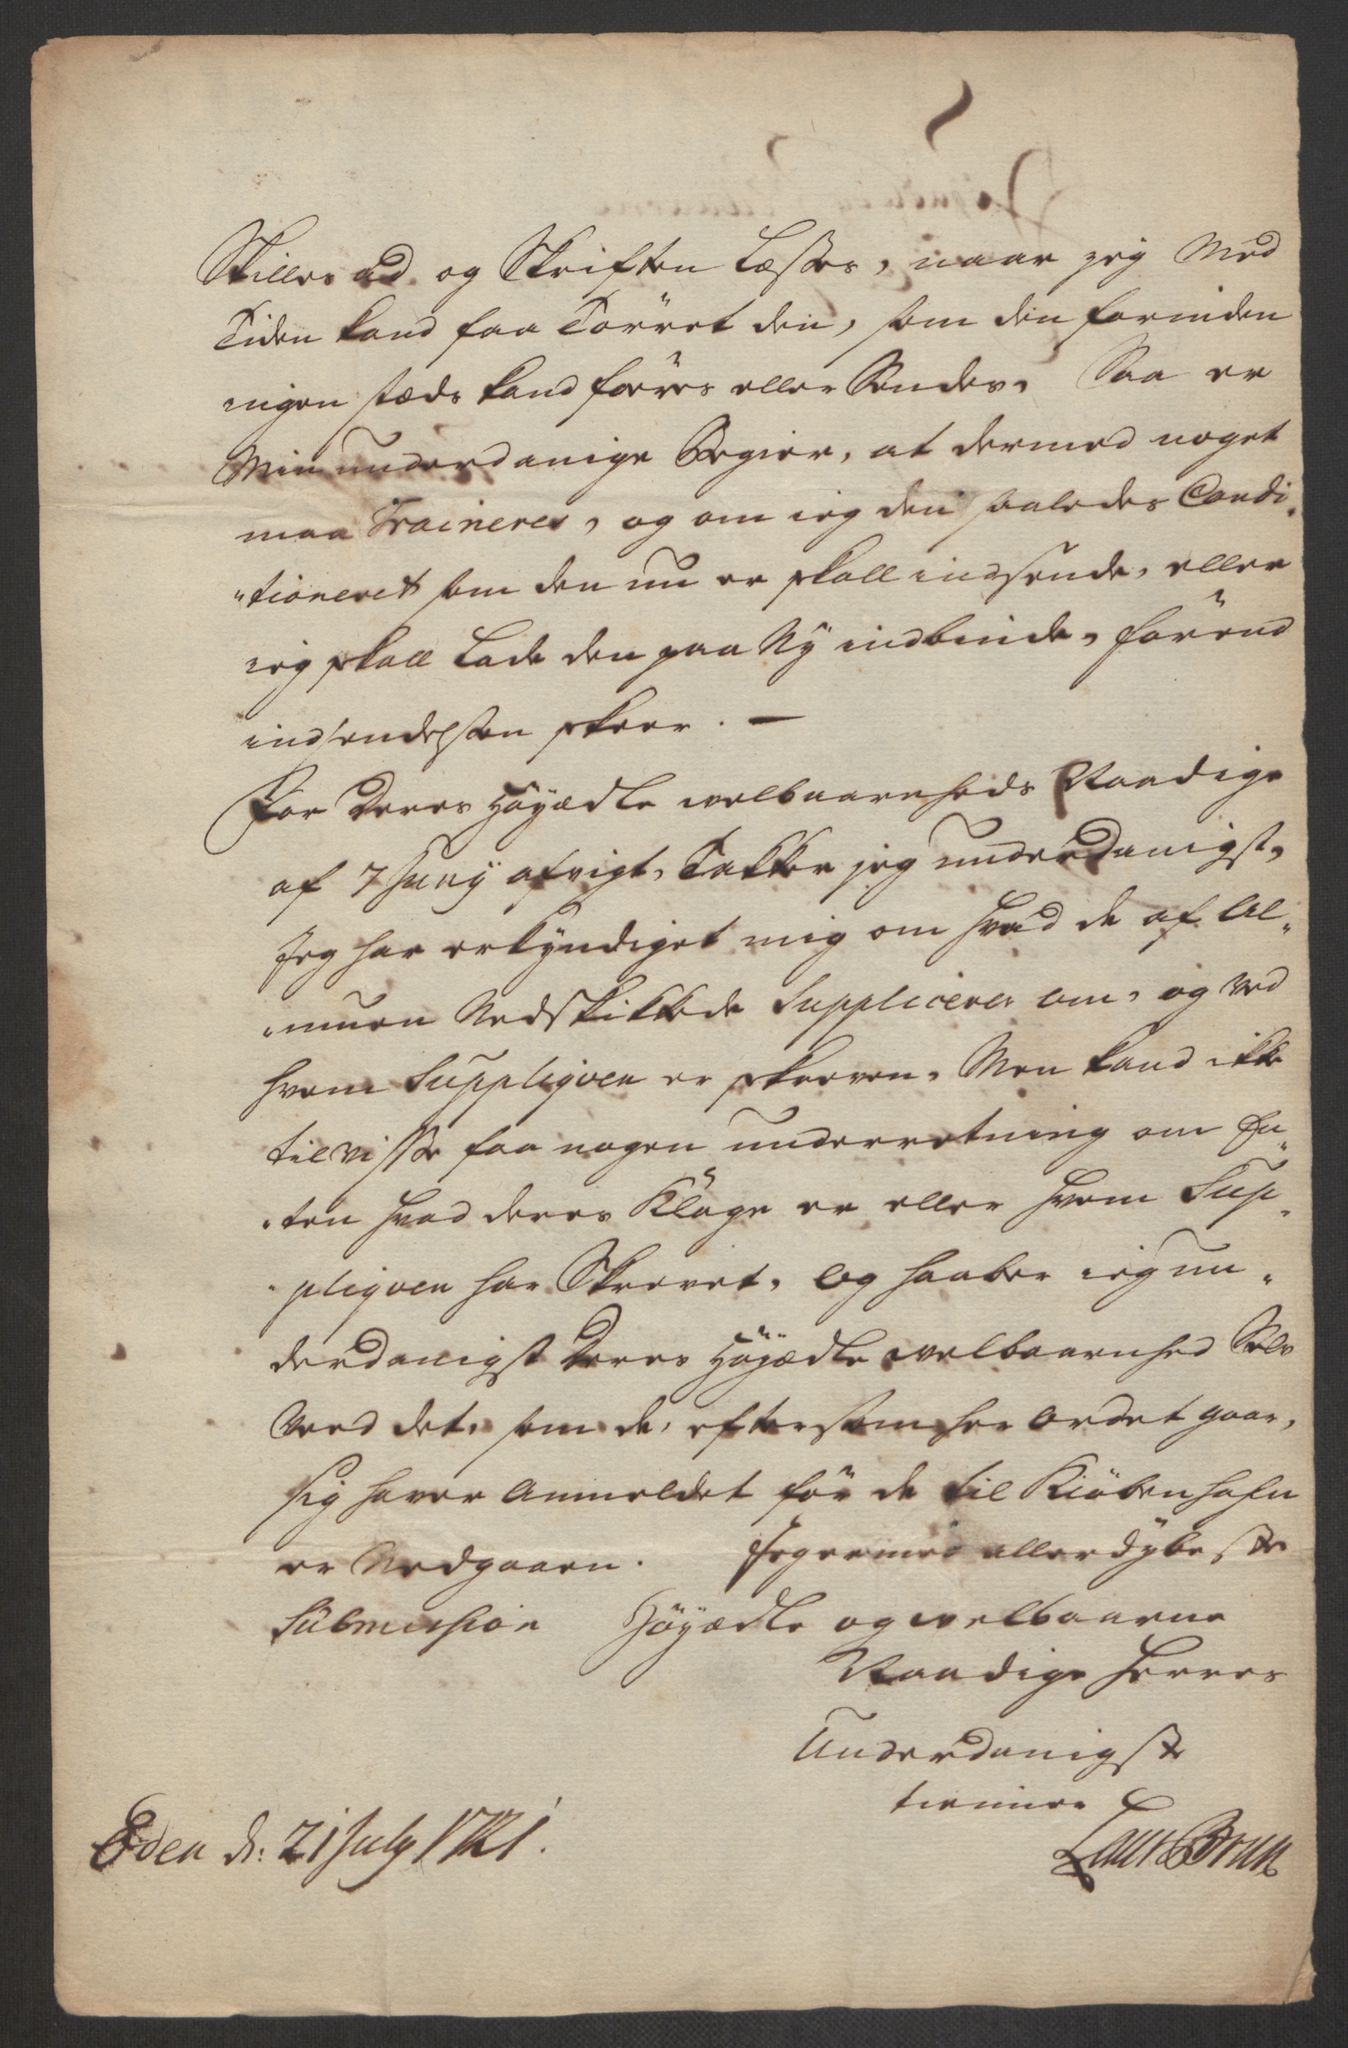 Skilles ad og Skriften Læsses, naar jeg Med
Tiden kand faa Törret den, som den forinden
ingen stæds kand föres eller Sendes. Saa er
Min underdanige Begier, at dermed noget
maa Traineres, og om ieg den saaledes Condi„
„tioneret som den nu er skall indsende, eller
ieg skall Lade den paa Ny indbinde, förend
indsendelssen skeer. —
For Deres Höyædle welbaarenheds Naadige
af 7 Juny afvigt, Takker jeg underdanigst,
Jeg har erkyndiget mig om hvad de af Al„
„muen Nedskikkede Supplicerer om, og Ved
hvem Suppliqven er skreven, Men kand ikke
til Visse faa nogen underretning om En„
„ten hvad deres Klage er eller hvem Sup„
„pliqven har Skrevet, Og haaber ieg un„
derdanigst Deres Höyædle welbaarenhed Selv
Veed det, som de, eftersom her Ordet gaar,
sig haver Anmeldet för de til Kiöbenhafn
er Nedgaaen. Jeg er med allerdybeste
Submission Höyædle og welbaarne
Naadige Herres
Underdanigste
tienner
Eden d: 21 July 1721.
Laur Brun